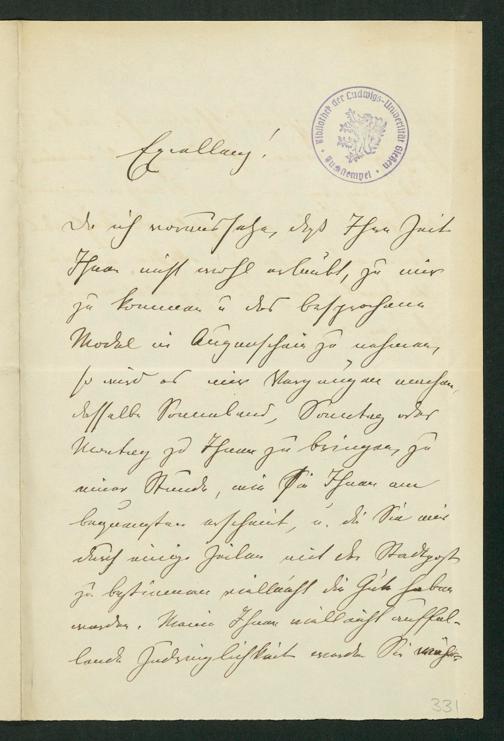 Bibliothek der Ludwigs-Universität Gießen
Excellenz!
Da ich voraussehe, daß Ihre Zeit
Ihnen nicht wohl erlaubt, zu mir
zu kommen u das besprochene
Model in Augenschein zu nehmen,
so wird es mir Vergnügen machen,
dasselbe Sonnabend, Sonntag oder
Montag zu Ihnen zu bringen, zu
einer Stunde, wie Sie Ihnen am
bequemsten erscheint, u. die Sie mir
durch einige Zeilen mit der Stadtpost
zu bestimmen vielleicht die Güte haben
werden. Meine Ihnen vielleicht auffal-
lende Zudringlichkeit werden Sie
331